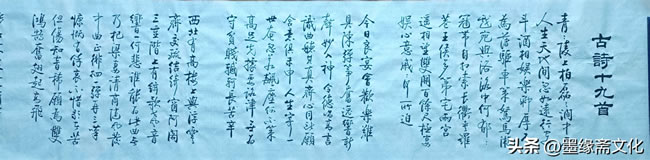 古詩十九首
青青陵上柏磊磊澗中
人生天地間忽如遠行客
斗酒相娛樂聊厚不
為薄驅車策駑馬遊
戲宛與洛洛中何鬱
冠帶自相索長衢羅夾
巷王侯多第宅兩宮
遙相望雙闕百餘尺極宴
娛心意戚戚何所迫
今日良宴會歡樂難
具陳彈箏奮逸響新
聲妙入神令德唱高言
識曲聽其真齊心同所願
含意俱未申人生寄一
世奄忽若飆塵何不策
高足先據要路津無為
守貧賤轗軻長苦辛
西北有高樓上與浮雲
齊交疏結綺窗阿閣
三重階上有絃歌聲音
響一何悲誰能為此曲無
乃杞梁妻清商隨風發
中曲正徘徊一彈再三嘆
慷慨有餘哀不惜歌者苦
但傷知音稀願為雙
鴻鵠奮翅起高飛
头条 @墨缘斋文化